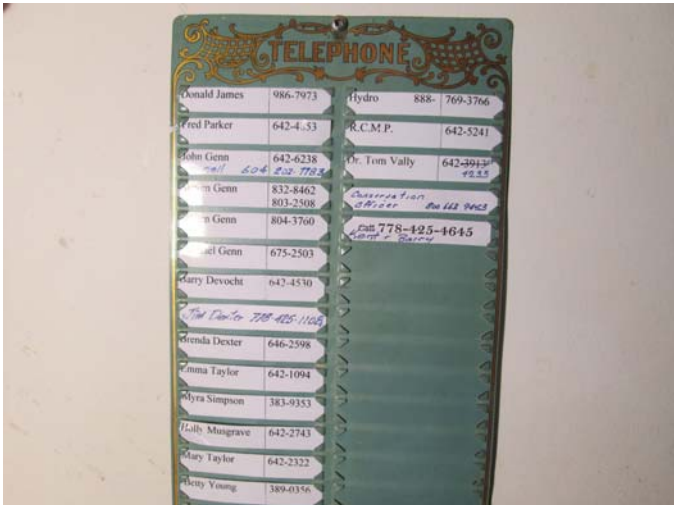 TELEPHONE
Donald James 986-7973
Fred Parker
John Genn 642-6238
604 202-7783
Genn 832-8462
803-2508
Genn 804-3760
Genn 675-2503
Barry Devocht 642-4530
Jim Dexter 778-425-1108
Brenda Dexter 646-2598
Emma Taylor 642-1094
Myra Simpson 383-9353
Holly Musgrave 642-2743
Mary Taylor 642-2322
Betty Young 389-0356
Hydro 888- 769-3766
R.C.M.P. 642-5241
Dr. Tom Vally 642-3913
4233
Conservation
Officer 800 663 9453
778-425-4645
Kent & Barry